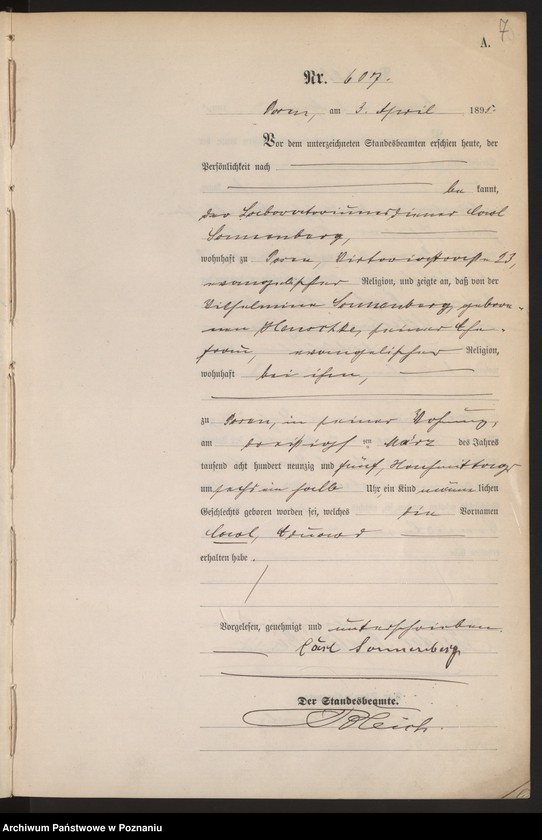 7
A.
Nr. 607.
Posen, am 3. April 1895.
Vor dem unterzeichneten Standesbeamten erschien heute, der
Persönlichkeit nach
be kannt,
der Laboratoriumsdiener Carl
Sonnenberg,
wohnhaft zu Posen, Victoriastraße 23,
evangelischer Religion, und zeigte an, daß von der
Wilhelmine Sonnenberg, gebore-
nen, seiner Ehe-
frau, evangelischer Religion,
wohnhaft bei ihm,
zu Posen, in seiner Wohnung,
am dreißigsten März des Jahres
tausend acht hundert neunzig und fünf, Nachmittags
um sechs ein halb Uhr ein Kind männ lichen
Geschlechts geboren worden sei, welches die Vornamen
Carl, Eduard
erhalten habe.
Vorgelesen, genehmigt und unterschrieben.
Carl Sonnenberg
Der Standesbeamte.
Archiwum Państwowe w Poznaniu